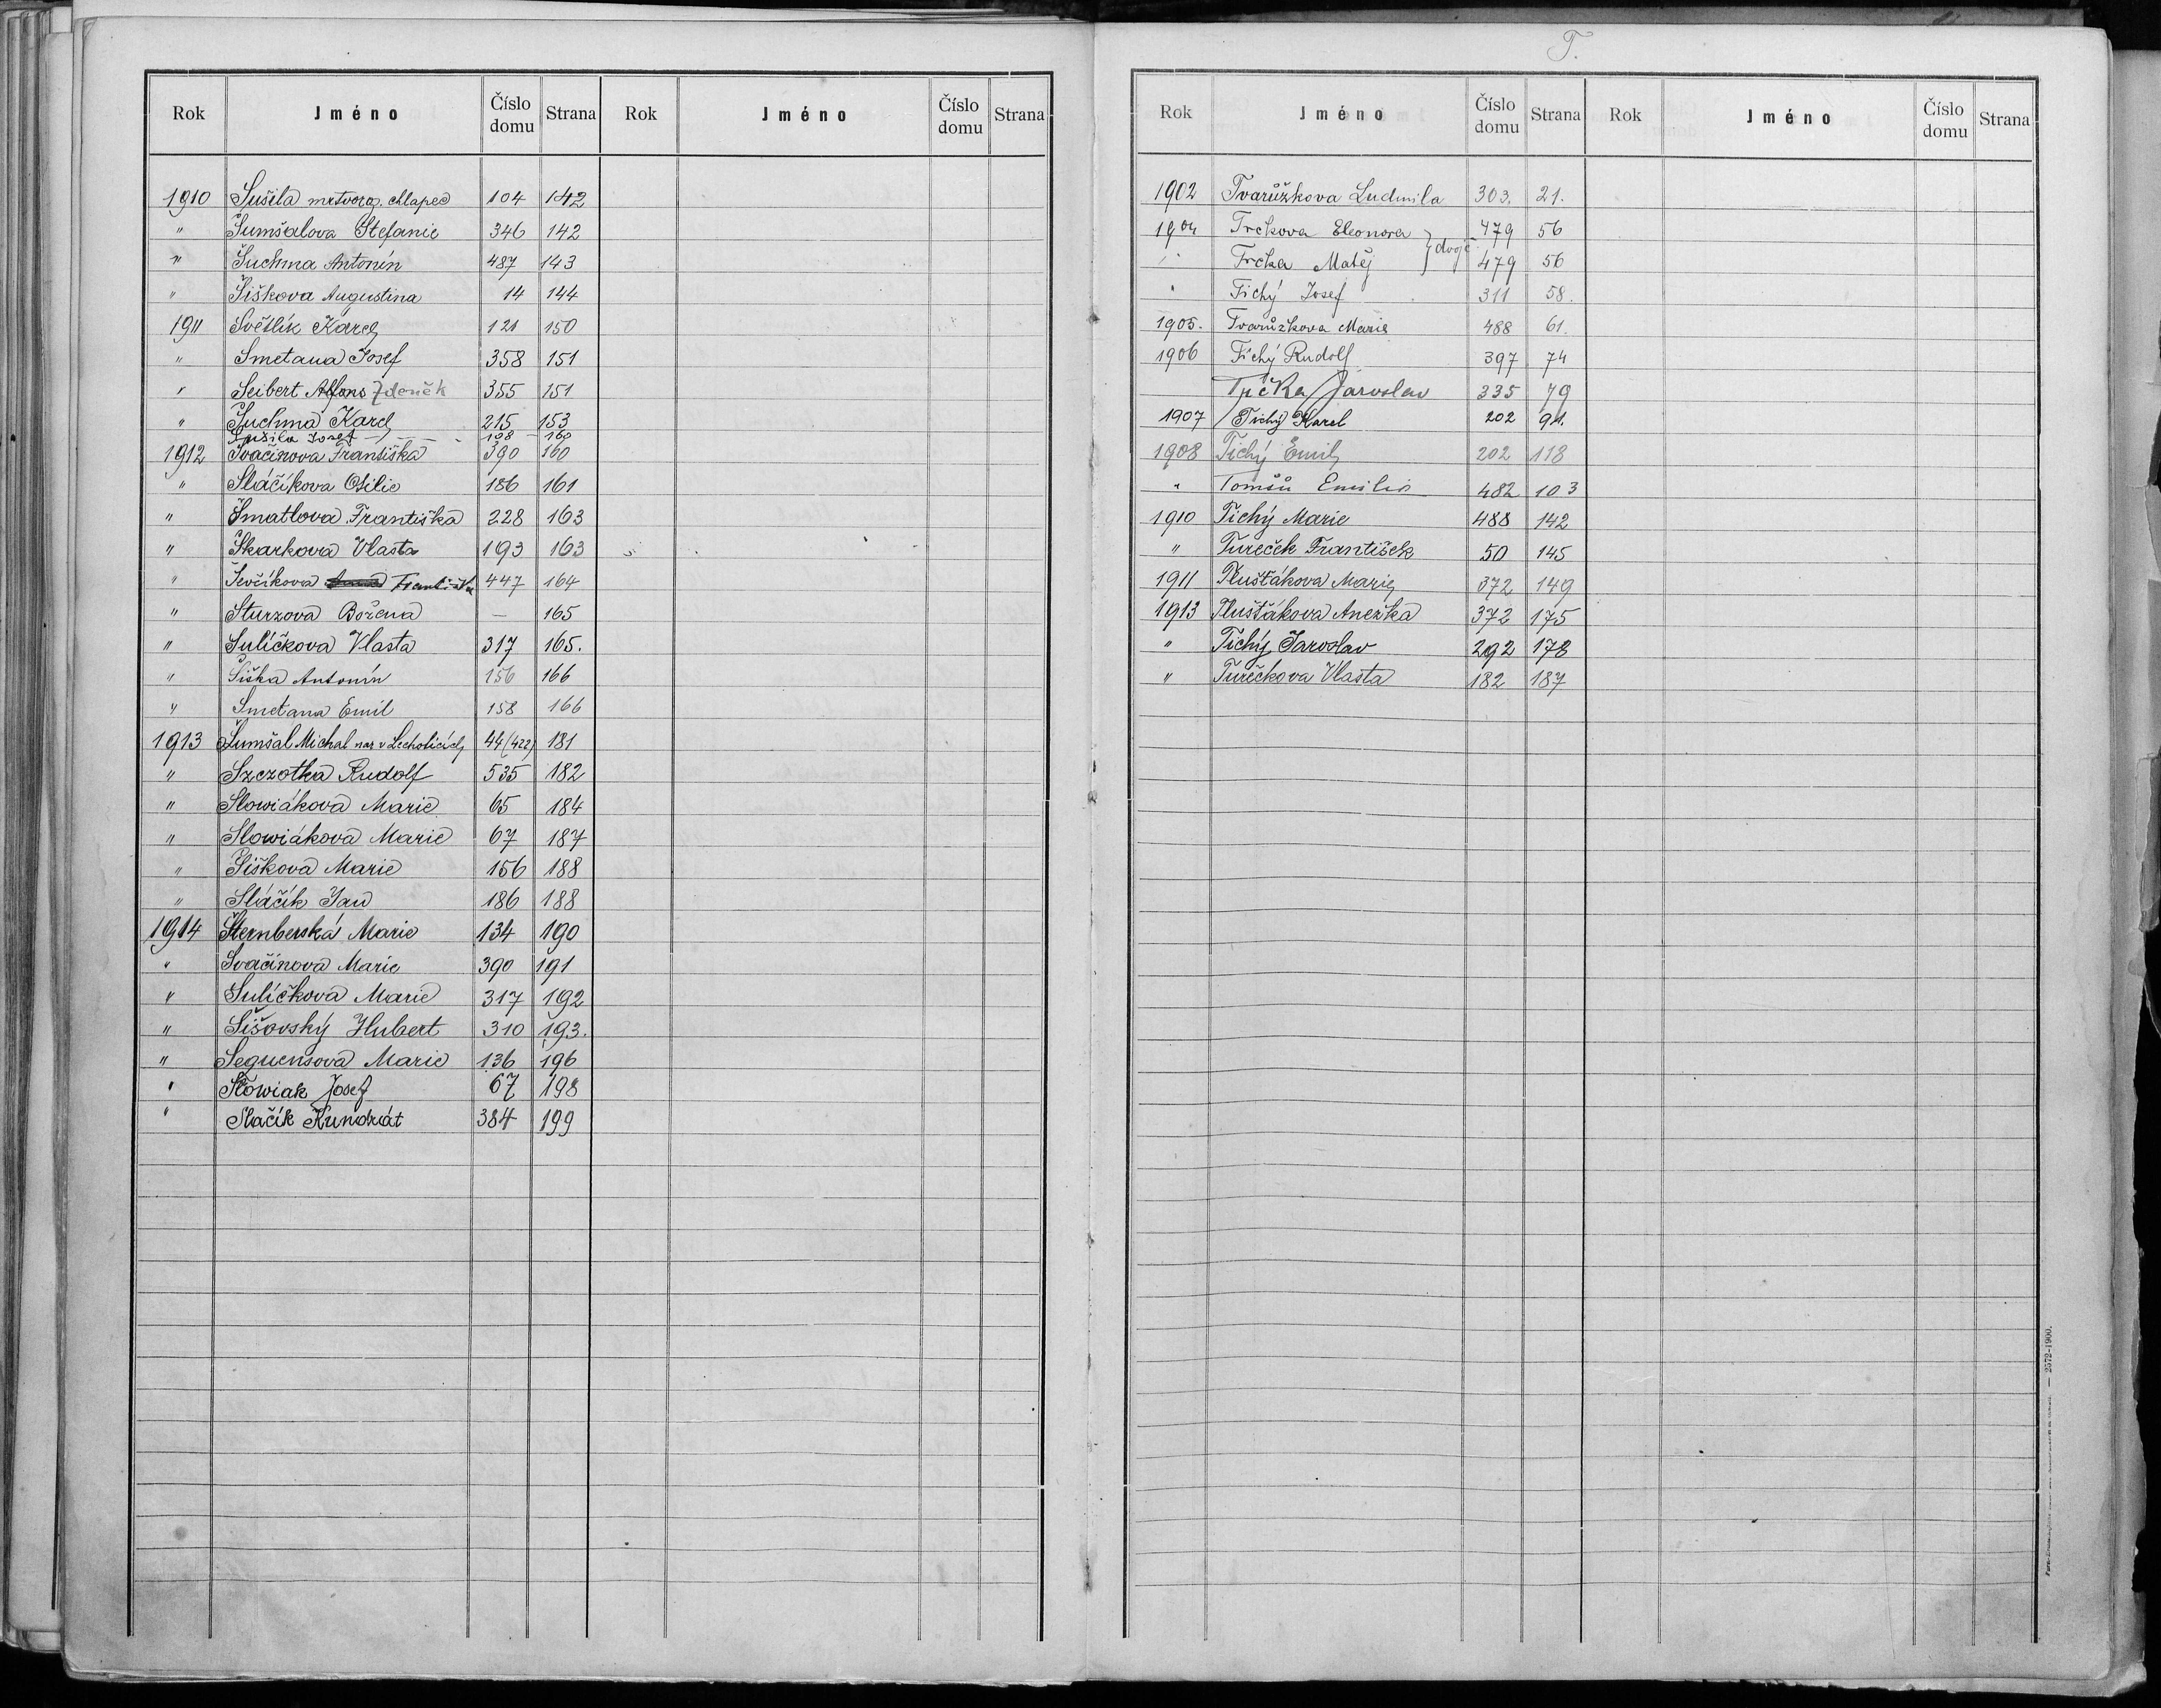 Rok Jméno Číslo domu Strana Rok Jméno Číslo domu Strana
1910 Sušila mrtvoroz. chlapec 104 142
" Šumšalova Stefanie 346 142
" Šuchma Antonín 487 143
" Šiškova Augustina 14 144
1911 Světlík Karel 121 150
" Smetana Josef 358 151
" Seibert Alfons Zdeněk 355 151
" Šuchma Karel 215 153
Sušila Josef 108 160
1912 Svačinova Františka 390 160
" Sláčíkova Otilie 186 161
" Šmatlova Františka 228 163
" Skarkova Vlasta 193 163
" Ševčíkova Františka 447 164
" Sturzova Božena — 165
" Sulíčkova Vlasta 317 165.
" Šiška Antonín 156 166
" Smetana Emil 158 166
1913 Šumšal Michal nar v Lecholicích 44 (422) 181
" Szczotka Rudolf 535 182
" Slowiákova Marie 65 184
" Slowiákova Marie 67 187
" Šiškova Marie 156 188
" Sláčík Jan 186 188
1914 Šternberská Marie 134 190
" Svačinova Marie 390 191
" Sulíčkova Marie 317 192
" Sišovský Hubert 310 193.
" Seguensova Marie 136 196
" Slowiak Josef 67 198
" Slačík Kundrát 384 199
T.
Rok Jméno Číslo domu Strana Rok Jméno Číslo domu Strana
1902 Tvarůžkova Ludmila 303. 21.
1904 Trckova Eleonora } dvojč. 479 56
" Trcka Matěj 479 56
" Tichý Josef 311 58.
1905. Tvarůžkova Marie 488 61.
1906 Tichý Rudolf 397 74
Trčka Jaroslav 335 79
1907 Tichý Karel 202 91.
1908 Tichý Emil 202 118
" Tomšů Emilie 482 103
1910 Tichý Marie 488 142
" Tureček František 50 145
1911 Tlušťákova Marie 372 149
1913 Tlušťákova Anežka 372 175
" Tichý Jaroslav 292 178
" Turečkova Vlasta 182 187
2572-1900.